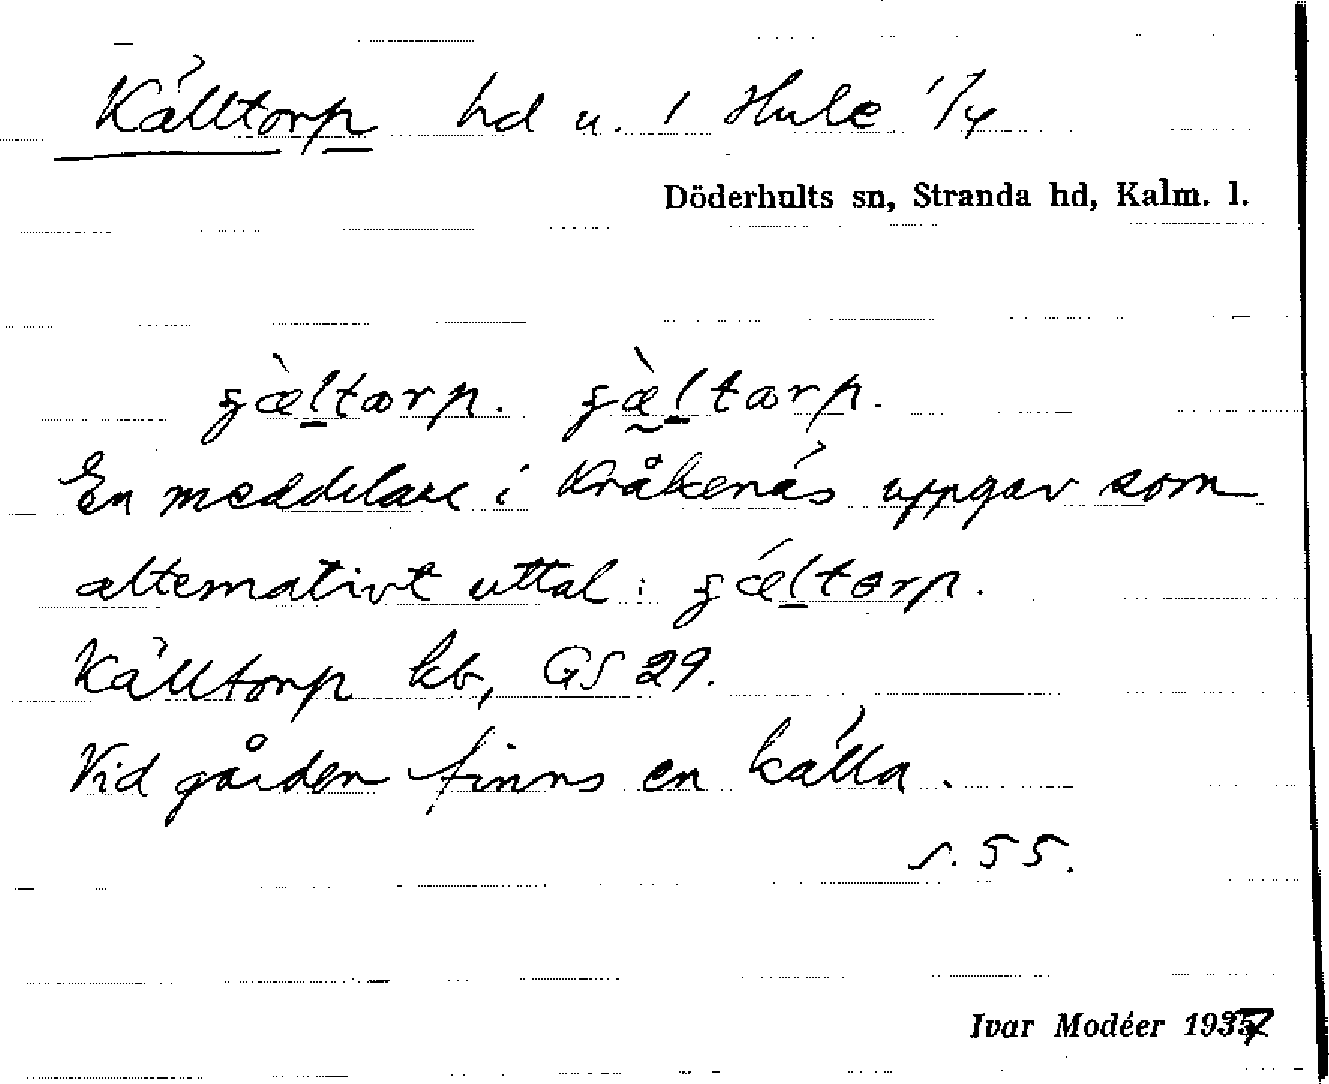 Källtorp hd u. 1 Hule 1/4
Döderhults sn, Stranda hd, Kalm. l.
En meddelare i Kråkenäs uppgav som
alternativt uttal:
Källtorp kb, GS 29.
Vid gården finns en källa.
s. 55.
Ivar Modéer 1937